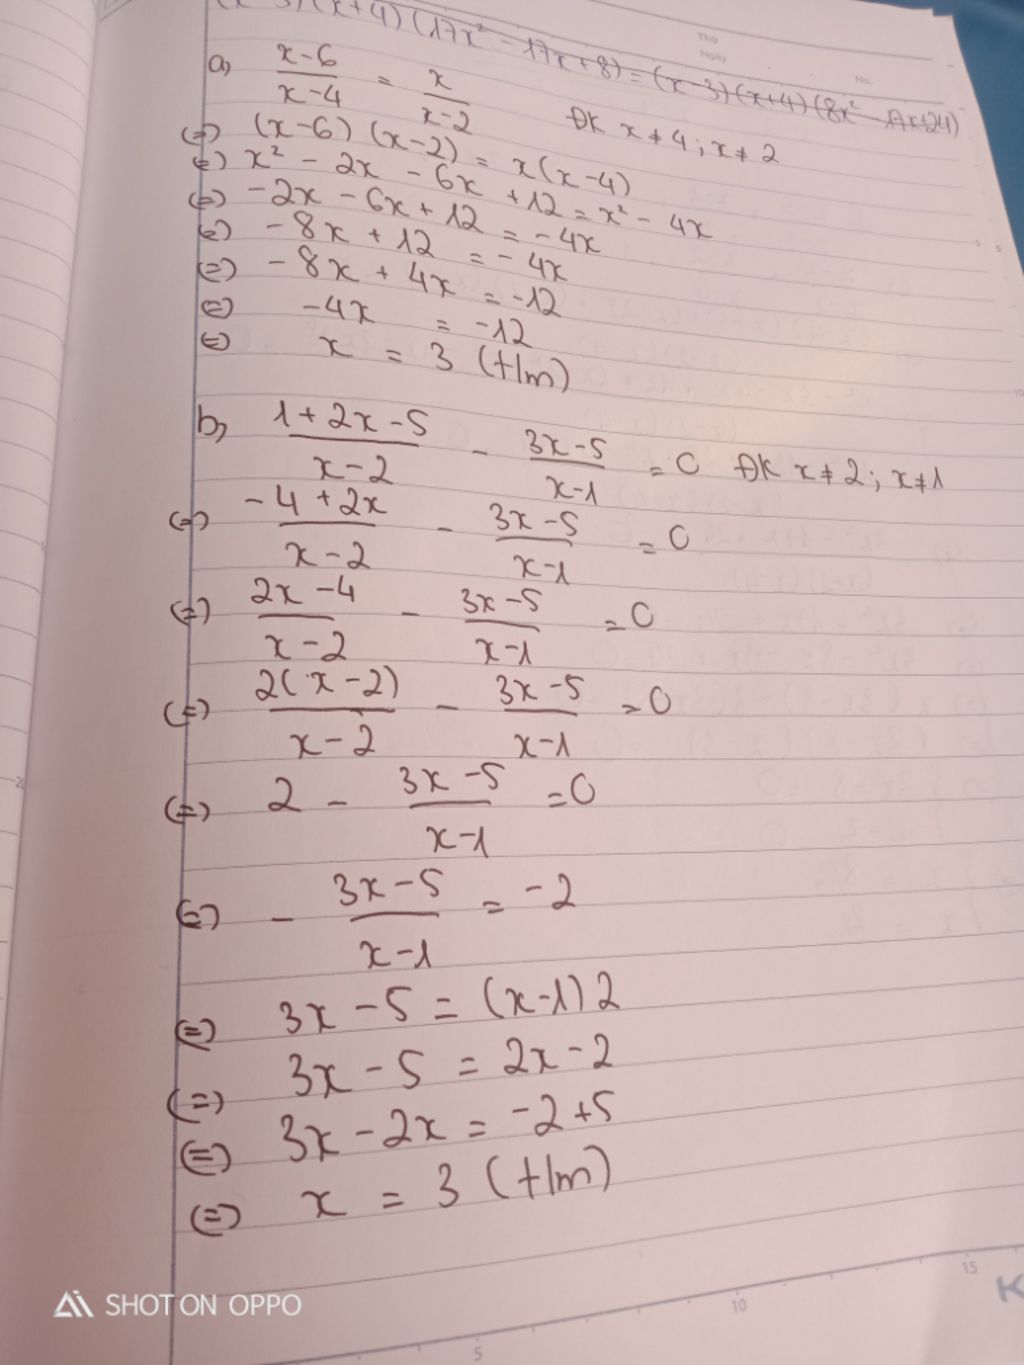 (x+4) (17x² - 17x + 8) = (x-3)(x+4)(8x²
Thứ
Ngày
No.
a) (x-6)/(x-4) = x/(x-2) ĐK x ≠ 4 ; x ≠ 2
(=) (x-6) (x-2) = x(x-4)
(=) x² - 2x - 6x + 12 = x² - 4x
(=) -2x - 6x + 12 = -4x
(=) -8x + 12 = -4x
(=) -8x + 4x = -12
(=) -4x = -12
(=) x = 3 (t/m)
b) (1 + 2x - 5)/(x-2) - (3x-5)/(x-1) = 0 ĐK x ≠ 2 ; x ≠ 1
(=) (-4 + 2x)/(x-2) - (3x-5)/(x-1) = 0
(=) (2x-4)/(x-2) - (3x-5)/(x-1) = 0
(=) 2(x-2)/(x-2) - (3x-5)/(x-1) = 0
(=) 2 - (3x-5)/(x-1) = 0
(=) - (3x-5)/(x-1) = -2
(=) 3x - 5 = (x-1) 2
(=) 3x - 5 = 2x - 2
(=) 3x - 2x = -2 + 5
(=) x = 3 (t/m)
5 10 15
K
SHOT ON OPPO